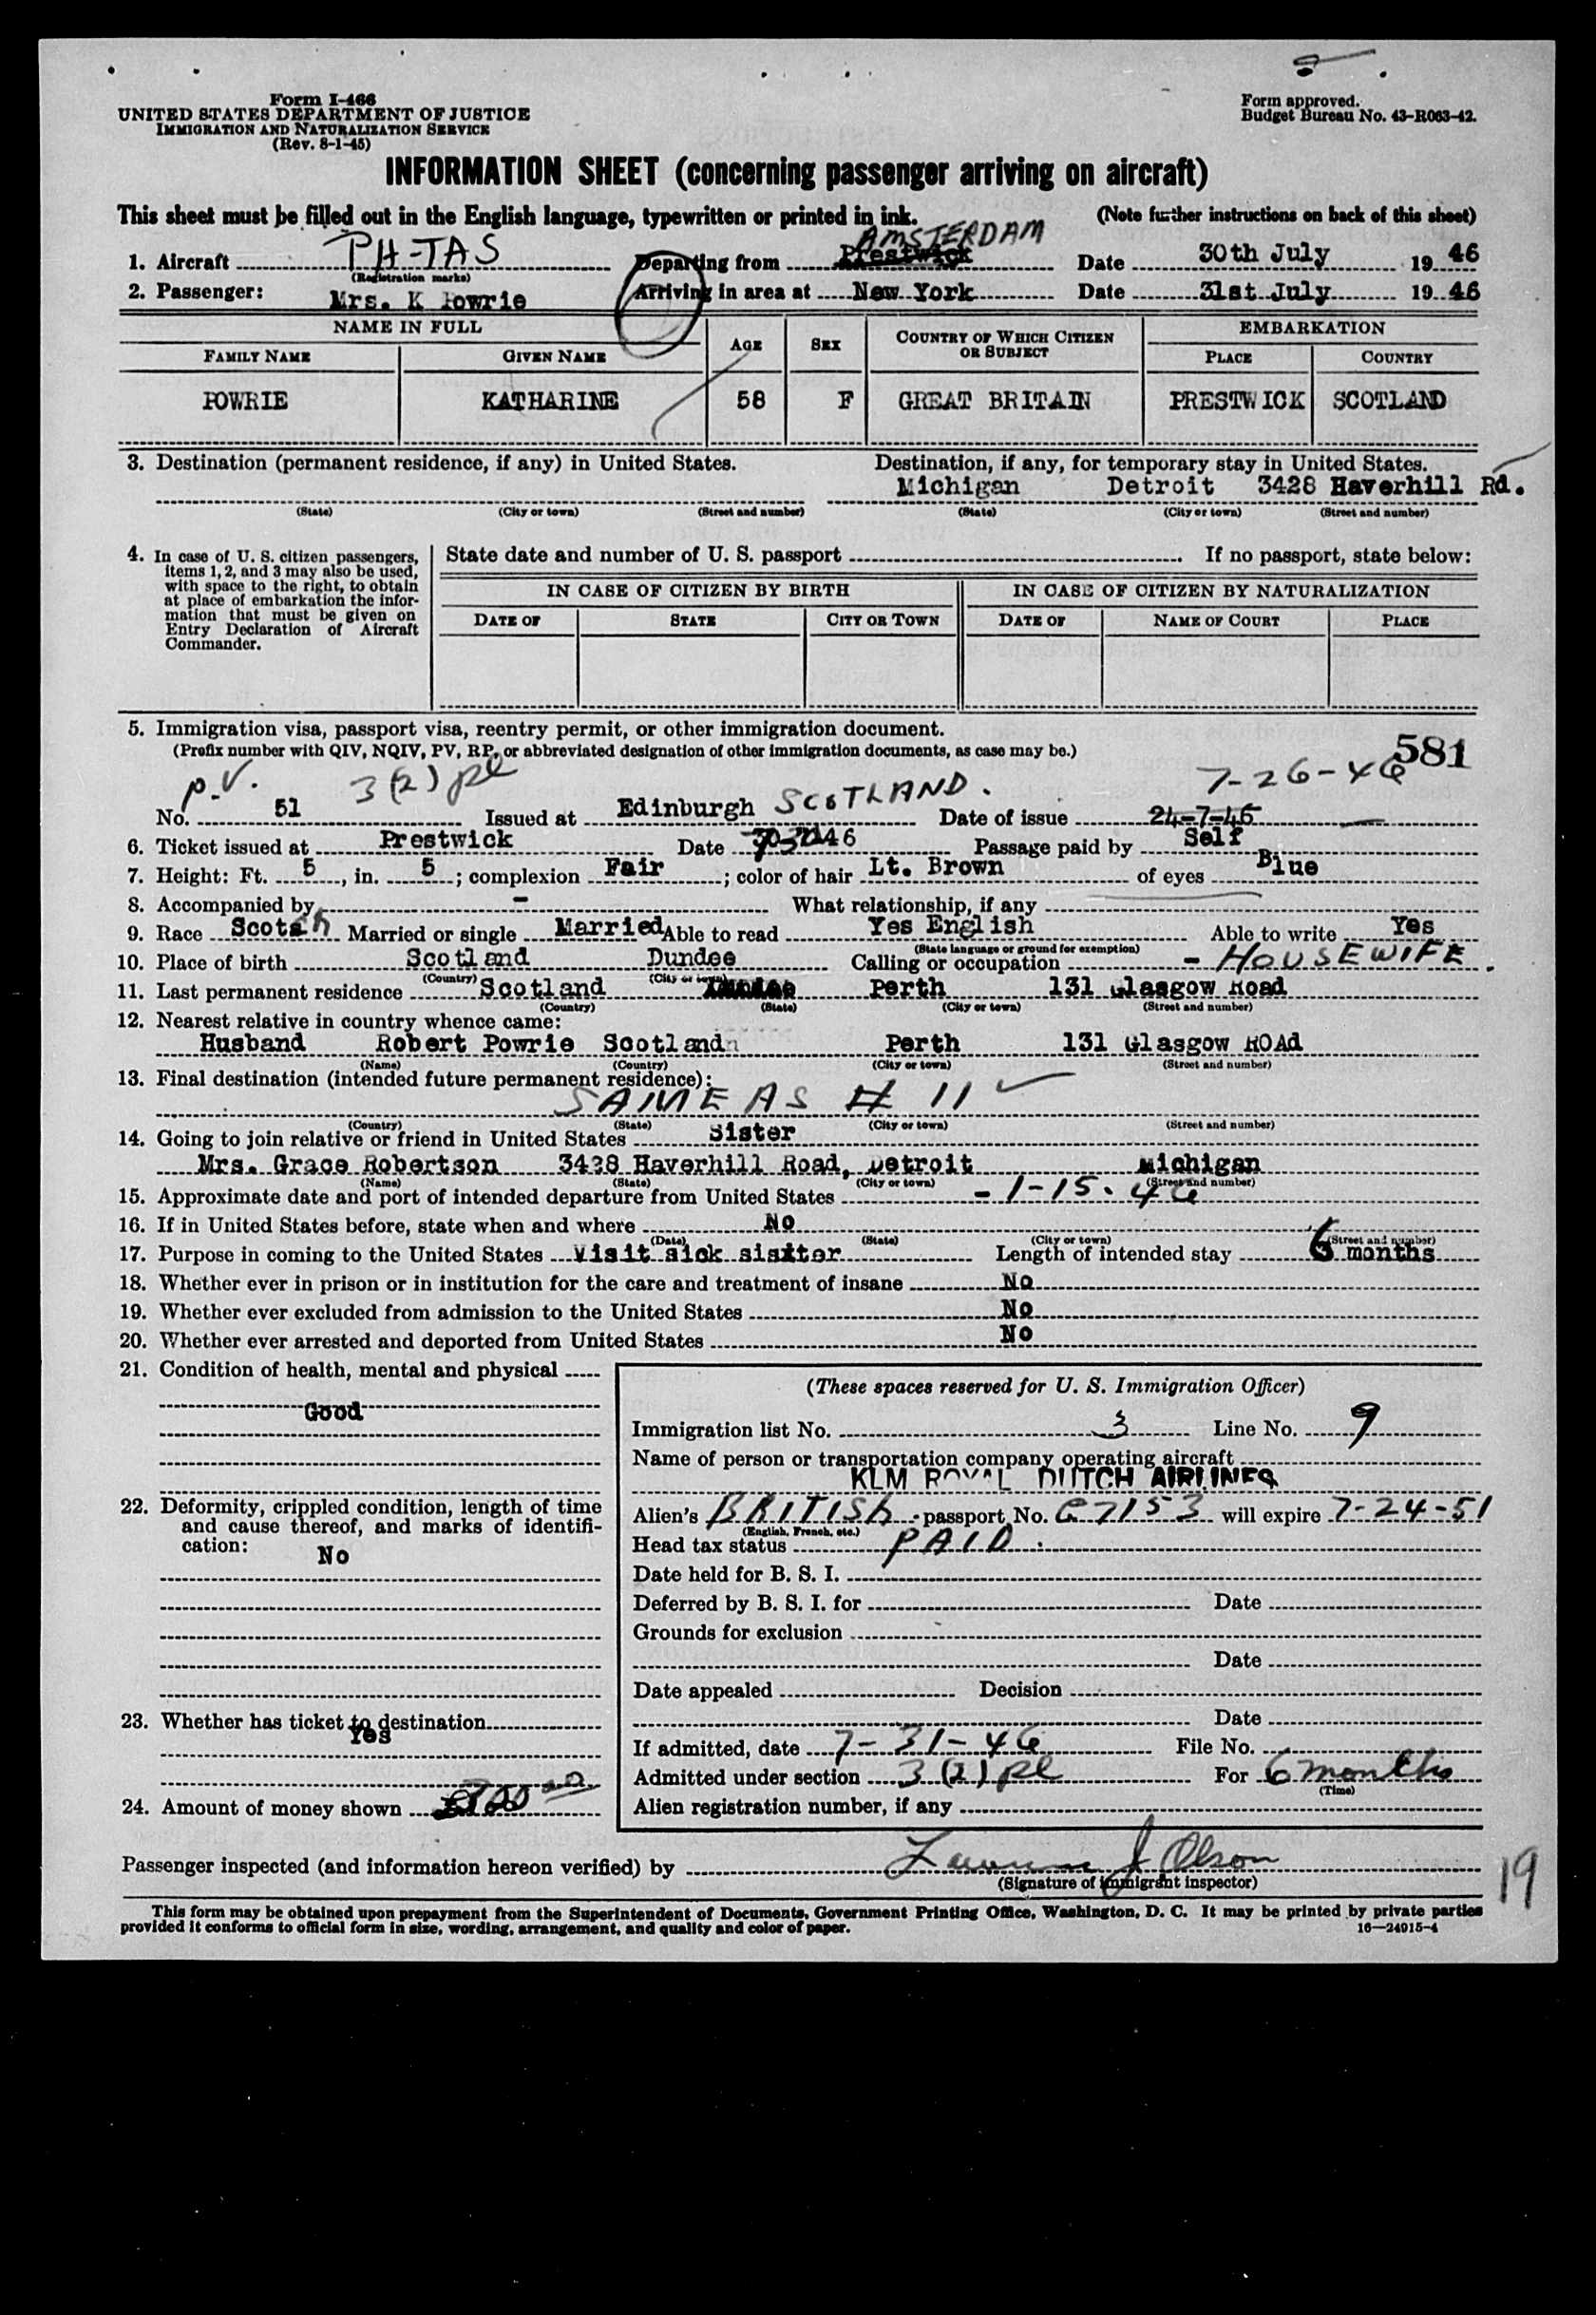 Form I-466
UNITED STATES DEPARTMENT OF JUSTICE
IMMIGRATION AND NATURALIZATION SERVICE
(Rev. 8-1-45)
Form approved.
Budget Bureau No. 43-R063-42.
INFORMATION SHEET (concerning passenger arriving on aircraft)
This sheet must be filled out in the English language, typewritten or printed in ink. (Note further instructions on back of this sheet)
AMSTERDAM
1. Aircraft PH-TAS Departing from Prestwick Date 30th July 19 46
(Registration marks)
2. Passenger: Mrs. K Powrie Arriving in area at New York Date 31st July 19 46
NAME IN FULL AGE SEX COUNTRY OF WHICH CITIZEN OR SUBJECT EMBARKATION
FAMILY NAME GIVEN NAME PLACE COUNTRY
POWRIE KATHARINE 58 F GREAT BRITAIN PRESTWICK SCOTLAND
3. Destination (permanent residence, if any) in United States. Destination, if any, for temporary stay in United States.
Michigan Detroit 3428 Haverhill Rd.
(State) (City or town) (Street and number) (State) (City or town) (Street and number)
4. In case of U. S. citizen passengers, items 1, 2, and 3 may also be used, with space to the right, to obtain at place of embarkation the information that must be given on Entry Declaration of Aircraft Commander.
State date and number of U. S. passport If no passport, state below:
IN CASE OF CITIZEN BY BIRTH IN CASE OF CITIZEN BY NATURALIZATION
DATE OF STATE CITY OR TOWN DATE OF NAME OF COURT PLACE
5. Immigration visa, passport visa, reentry permit, or other immigration document.
(Prefix number with QIV, NQIV, PV, RP, or abbreviated designation of other immigration documents, as case may be.) 581
P.V. 3(2) pl 7-26-46
No. 51 Issued at Edinburgh SCOTLAND. Date of issue 24-7-46
6. Ticket issued at Prestwick Date Passage paid by Self
7. Height: Ft. 5, in. 5; complexion Fair; color of hair Lt. Brown of eyes Blue
8. Accompanied by - What relationship, if any
9. Race Scotch Married or single Married Able to read Yes English Able to write Yes
(State language or ground for exemption)
10. Place of birth Scotland Dundee Calling or occupation - HOUSEWIFE.
(Country) (City or town)
11. Last permanent residence Scotland Perth 131 Glasgow Road
(Country) (State) (City or town) (Street and number)
12. Nearest relative in country whence came:
Husband Robert Powrie Scotland Perth 131 Glasgow ROAd
(Name) (Country) (City or town) (Street and number)
13. Final destination (intended future permanent residence):
SAME AS # 11
(Country) (State) (City or town) (Street and number)
14. Going to join relative or friend in United States Sister
Mrs. Grace Robertson 3428 Haverhill Road, Detroit Michigan
(Name) (State) (City or town) (Street and number)
15. Approximate date and port of intended departure from United States - 1-15-46
16. If in United States before, state when and where No
(Date) (State) (City or town) (Street and number)
17. Purpose in coming to the United States Visit sick sister Length of intended stay 6 months
18. Whether ever in prison or in institution for the care and treatment of insane No
19. Whether ever excluded from admission to the United States No
20. Whether ever arrested and deported from United States No
21. Condition of health, mental and physical
Good
22. Deformity, crippled condition, length of time and cause thereof, and marks of identification:
No
23. Whether has ticket to destination
Yes
24. Amount of money shown
(These spaces reserved for U. S. Immigration Officer)
Immigration list No. 3 Line No. 9
Name of person or transportation company operating aircraft
KLM ROYAL DUTCH AIRLINES
Alien's BRITISH passport No. C7153 will expire 7-24-51
(English, French, etc.)
Head tax status PAID.
Date held for B. S. I.
Deferred by B. S. I. for Date
Grounds for exclusion
Date
Date appealed Decision
Date
If admitted, date 7-31-46 File No.
Admitted under section 3(2) pl For 6 months
(Time)
Alien registration number, if any
Passenger inspected (and information hereon verified) by J Olson
(Signature of immigrant inspector)
19
This form may be obtained upon prepayment from the Superintendent of Documents, Government Printing Office, Washington, D. C. It may be printed by private parties
provided it conforms to official form in size, wording, arrangement, and quality and color of paper. 16—24915-4